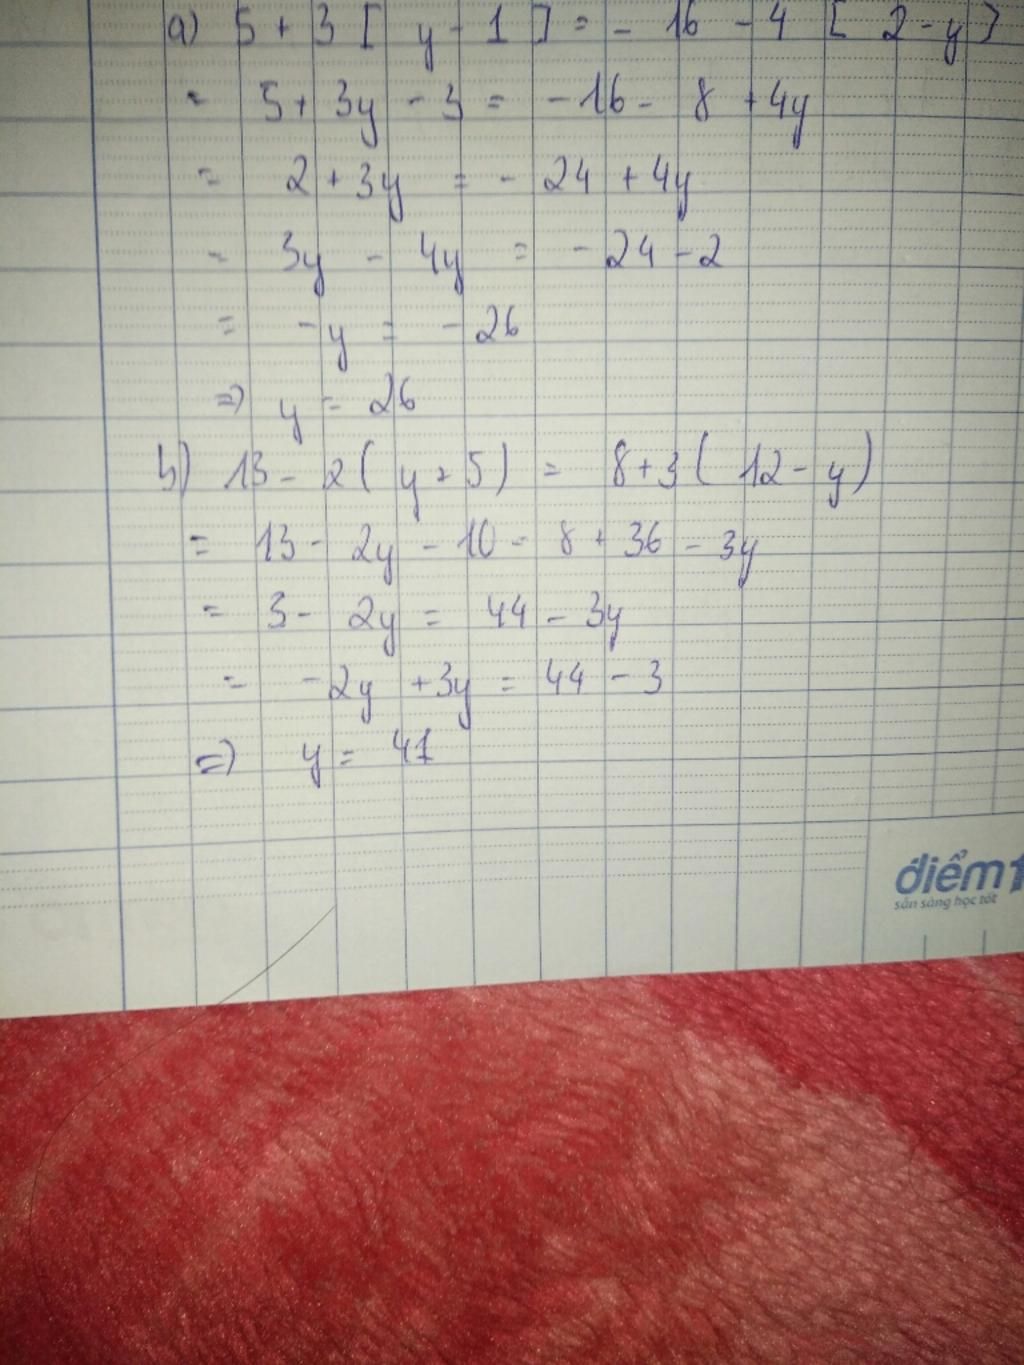 a) 5 + 3 [ y - 1 ] = - 16 - 4 [ 2 - y ]
= 5 + 3y - 3 = - 16 - 8 + 4y
= 2 + 3y = - 24 + 4y
= 3y - 4y = - 24 - 2
= - y = - 26
=> y = 26
b) 13 - 2 ( y + 5 ) = 8 + 3 ( 12 - y )
= 13 - 2y - 10 = 8 + 36 - 3y
= 3 - 2y = 44 - 3y
= - 2y + 3y = 44 - 3
=> y = 41
điểm1
sẵn sàng học tốt